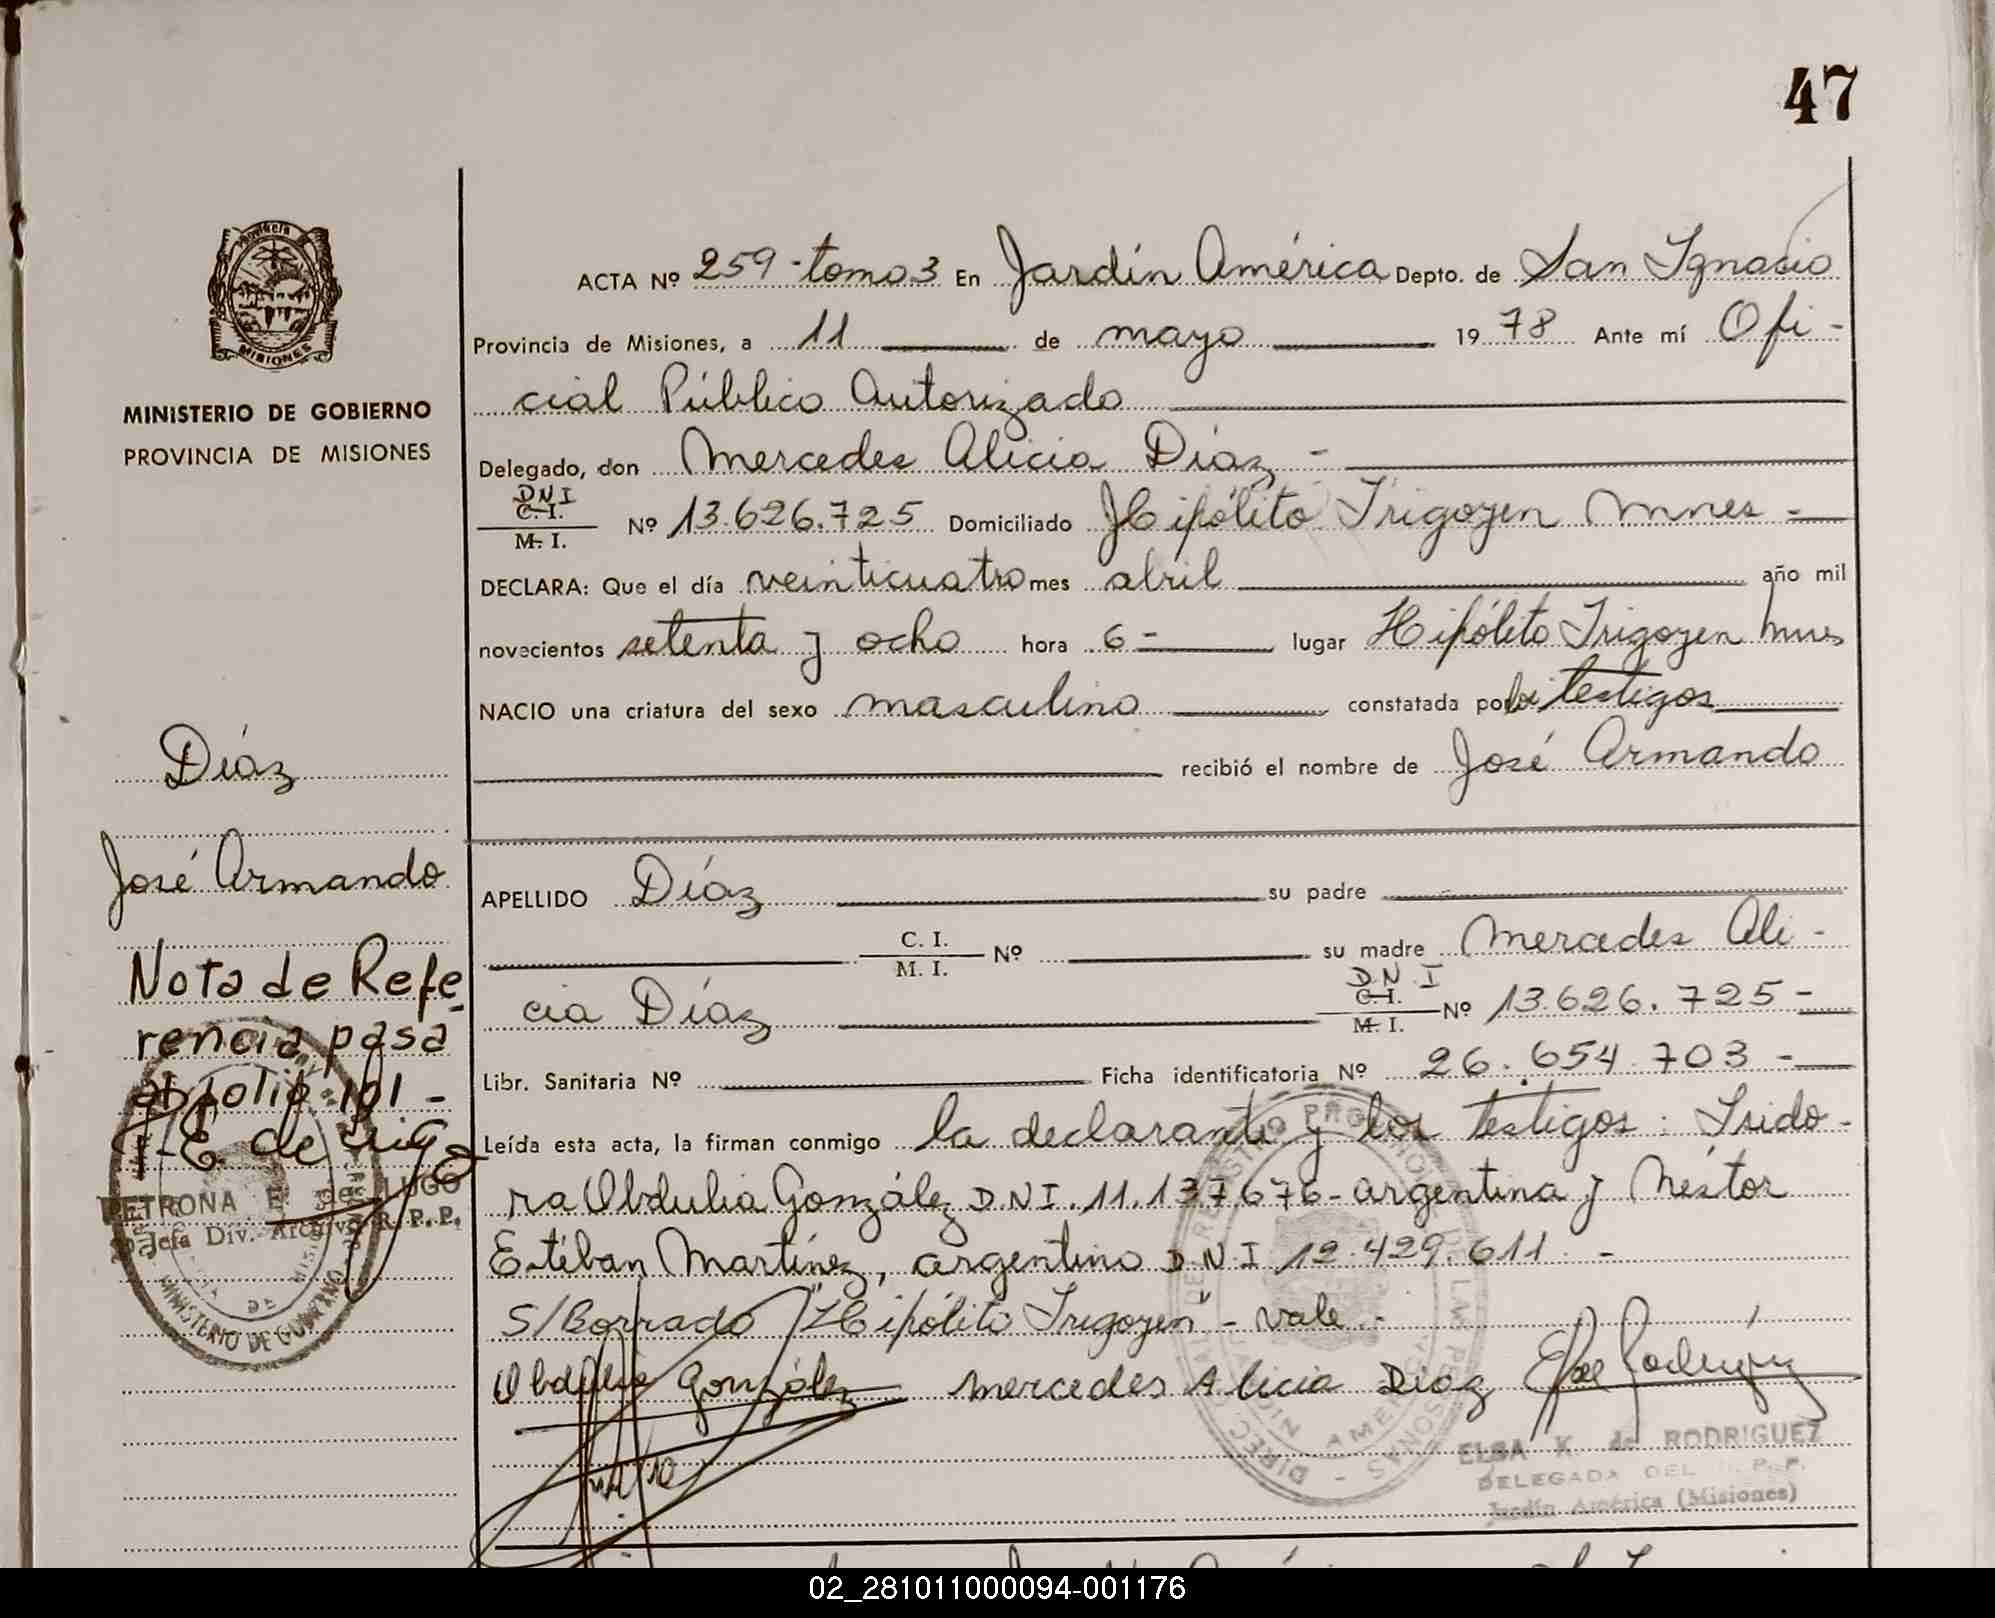 47
Provincia
MISIONES
MINISTERIO DE GOBIERNO
PROVINCIA DE MISIONES
ACTA Nº 259-tomo 3 En Jardín América Depto. de San Ignacio
Provincia de Misiones, a 11 de mayo 1978 Ante mí Ofi-
cial Público Autorizado
Delegado, don Mercedes Alicia Díaz -
DNI
C. I.
M. I.
Nº 13.626.725 Domiciliado Hipólito Irigoyen Mnes -
DECLARA: Que el día veinticuatro mes abril año mil
novecientos setenta y ocho hora 6 - lugar Hipólito Irigoyen Mnes
NACIO una criatura del sexo masculino constatada por testigos
recibió el nombre de José Armando
Díaz
José Armando
Nota de Refe-
rencia pasa
al folio 101 -
PETRONA E. de LUGO
Jefa Div. Archivo R.P.P.
MINISTERIO DE GOBIERNO
APELLIDO Díaz su padre
C. I.
M. I.
Nº su madre Mercedes Ali-
cia Díaz
D.N.I
C. I.
M. I.
Nº 13.626.725 -
Libr. Sanitaria Nº Ficha identificatoria Nº 26.654.703 -
Leída esta acta, la firman conmigo la declarante y los testigos: Isido-
ra Obdulia González D.N.I. 11.137.676 - argentina y Néstor
Estéban Martínez, argentino D.N.I 12.429.611 -
S/Borrado "Hipólito Irigoyen" - vale -
Obdulia González Mercedes Alicia Diaz
ELSA K de RODRIGUEZ
DELEGADA DEL R. P. P.
Jardín América (Misiones)
02_281011000094-001176